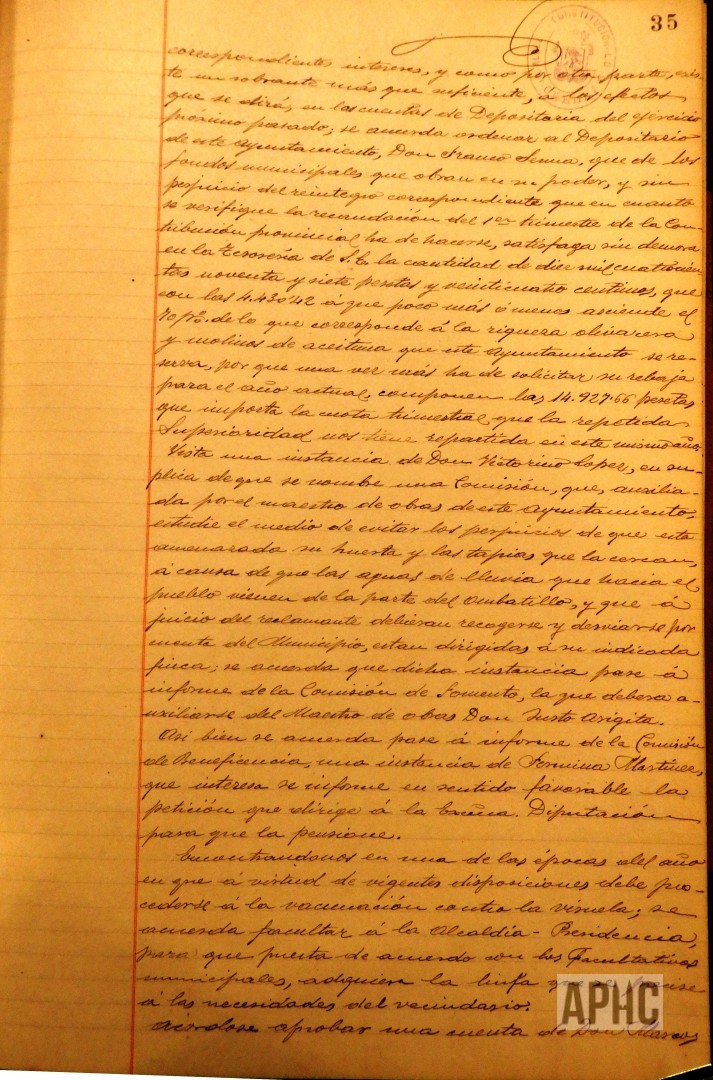 35
correspondientes intereses, y como por otra parte, exis-
te un sobrante más que suficiente, á los efectos
que se dirá, en las cuentas de Depositaria del ejercicio
próximo pasado; se acuerda ordenar al Depositario
de este Ayuntamiento, Don Franco Senna, que de los
fondos municipales que obran en su poder, y sin
perjuicio del reintegro correspondiente que en cuanto
se verifique la recaudación del 1er trimestre de la Con-
tribución provincial ha de hacerse, satisfaga sin demora
en la Tesorería de S.E. la cantidad de diez mil cuatrocien
tos noventa y siete pesetas y veinticuatro centimos, que
con las 4.430'42 á que poco más ó menos asciende el
70 p%. de lo que corresponde á la riqueza olivarera
y molinos de aceituna que este Ayuntamiento se re-
serva, por que una vez más ha de solicitar su rebaja
para el año actual, componen las 14.927'66 pesetas
que importa la cuota trimestral que la repetida
Superioridad nos tiene repartida en este mismo año.
Vista una instancia de Don Victorino Lopez, en sú-
plica de que se nombre una Comisión, que, auxilia-
da por el maestro de obras de este Ayuntamiento,
estudie el medio de evitar los perjuicios de que esta
amenazada su huerta y las tapias que la cercan,
á causa de que las aguas de lluvia que hacia el
pueblo vienen de la parte del Ombatillo, y que á
juicio del reclamante debieran recogerse y desviarse por
cuenta del Municipio, estan dirigidas á su indicada
finca; se acuerda que dicha instancia pase á
informe de la Comisión de Fomento, la que debera a-
uxiliarse del Maestro de obras Don Justo Arigita.
Asi bien se acuerda pase á informe de la Comisión
de Beneficencia, una instancia de Fermina Martinez,
que interesa se informe en sentido favorable la
petición que dirige á la Excma. Diputación
para que la pensione.
Encontrandonos en una de las épocas del año
en que á virtud de vigentes disposiciones debe pro-
cederse á la vacunación contra la viruela; se
acuerda facultar á la Alcaldía-Presidencia,
para que puesta de acuerdo con los Facultativos
municipales, adquiera la linfa que se precise
á las necesidades del vecindario.
Acordose aprobar una cuenta de Don Marcos
APHC